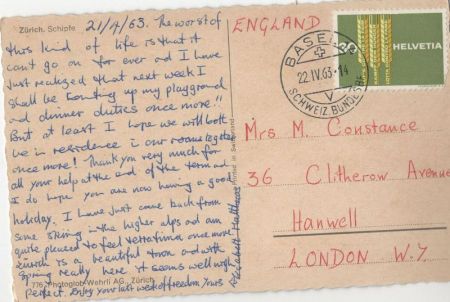 Zürich. Schipfe
21/4/63. The worst of
this kind of life is that it
can't go on for ever and I have
just realized that next week I
shall be counting up my playground
and dinner duties once more!!
But at least I hope we will both
be in residence in our rooms together
once more! Thank you very much for
all your help at the end of the term and
I do hope you are now having a good
holiday. I have just come back from
some skiing in the higher alps and am
quite pleased to feel terra firma once more.
Zürich is a beautiful town and with
Spring really here it seems well nigh
perfect. Enjoy your last week of freedom Yours
Elizabeth
776 Photoglob-Wehrli AG, Zürich
Printed in Switzerland
ENGLAND
BASEL
22.IV.63-14
SCHWEIZ. BUNDESB
HELVETIA
Mrs M. Constance
36 Clitherow Avenue
Hanwell
LONDON W.7.